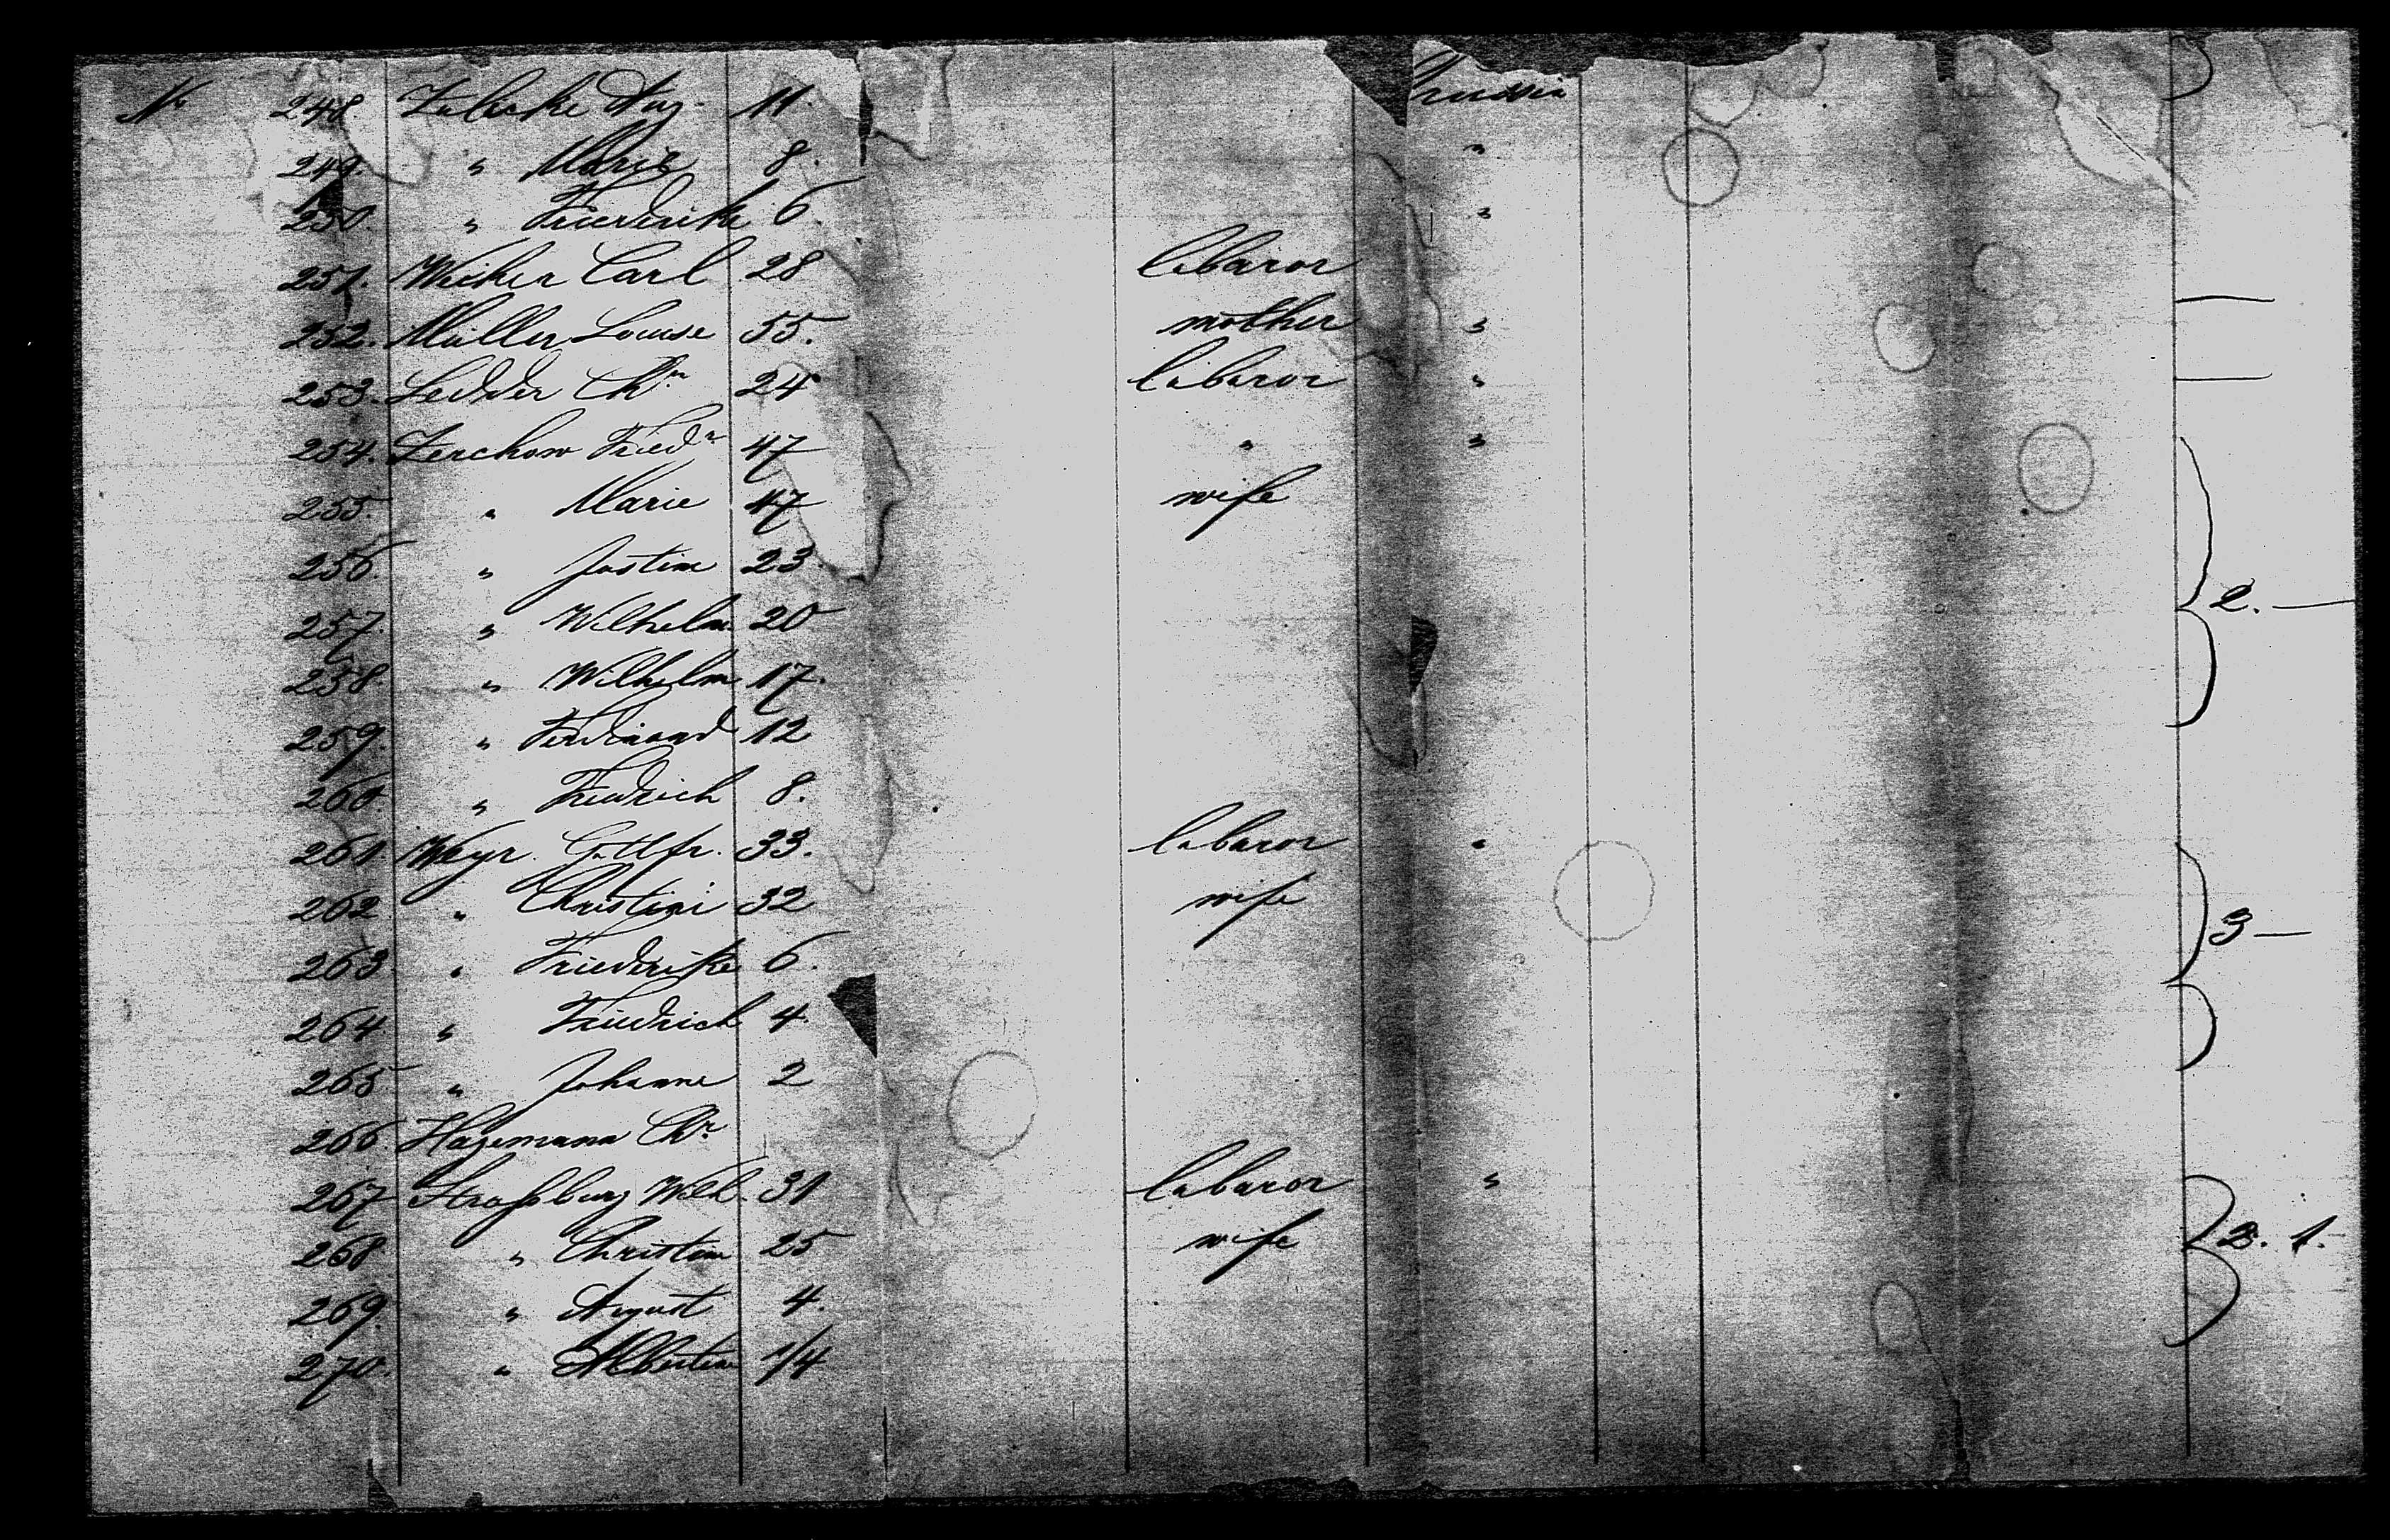 N 248. Aug. 11. Prussia
249. " Marie 8. "
250. " Friederike 6. "
251. Weiher Carl 28 labaror
252. Müller Louise 55. mother "
253. Ledder Chrn 24 labaror "
254. Zerchow Friedr 47 " "
255. " Marie 47 wife
256. " Justine 23.
257. " Wilhelm. 20
258 " Wilhelm 17.
259. " Ferdinand 12
2. —
260. " Friedrich 8.
261. Weyr. Gottfr. 33. labaror "
262 " Christine 32 wife
3 —
263 " Friederike 6.
264 " Friedrich 4.
265 " Johanne 2
266. Hagemann Chr
267 Strassburg Wilh. 31 labaror "
268 " Christine 25 wife 2. 1.
269. " August 4.
270. " Albertine 1/4